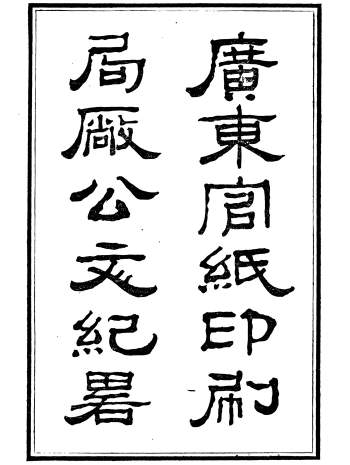 廣東官紙印刷
局廠公文紀畧